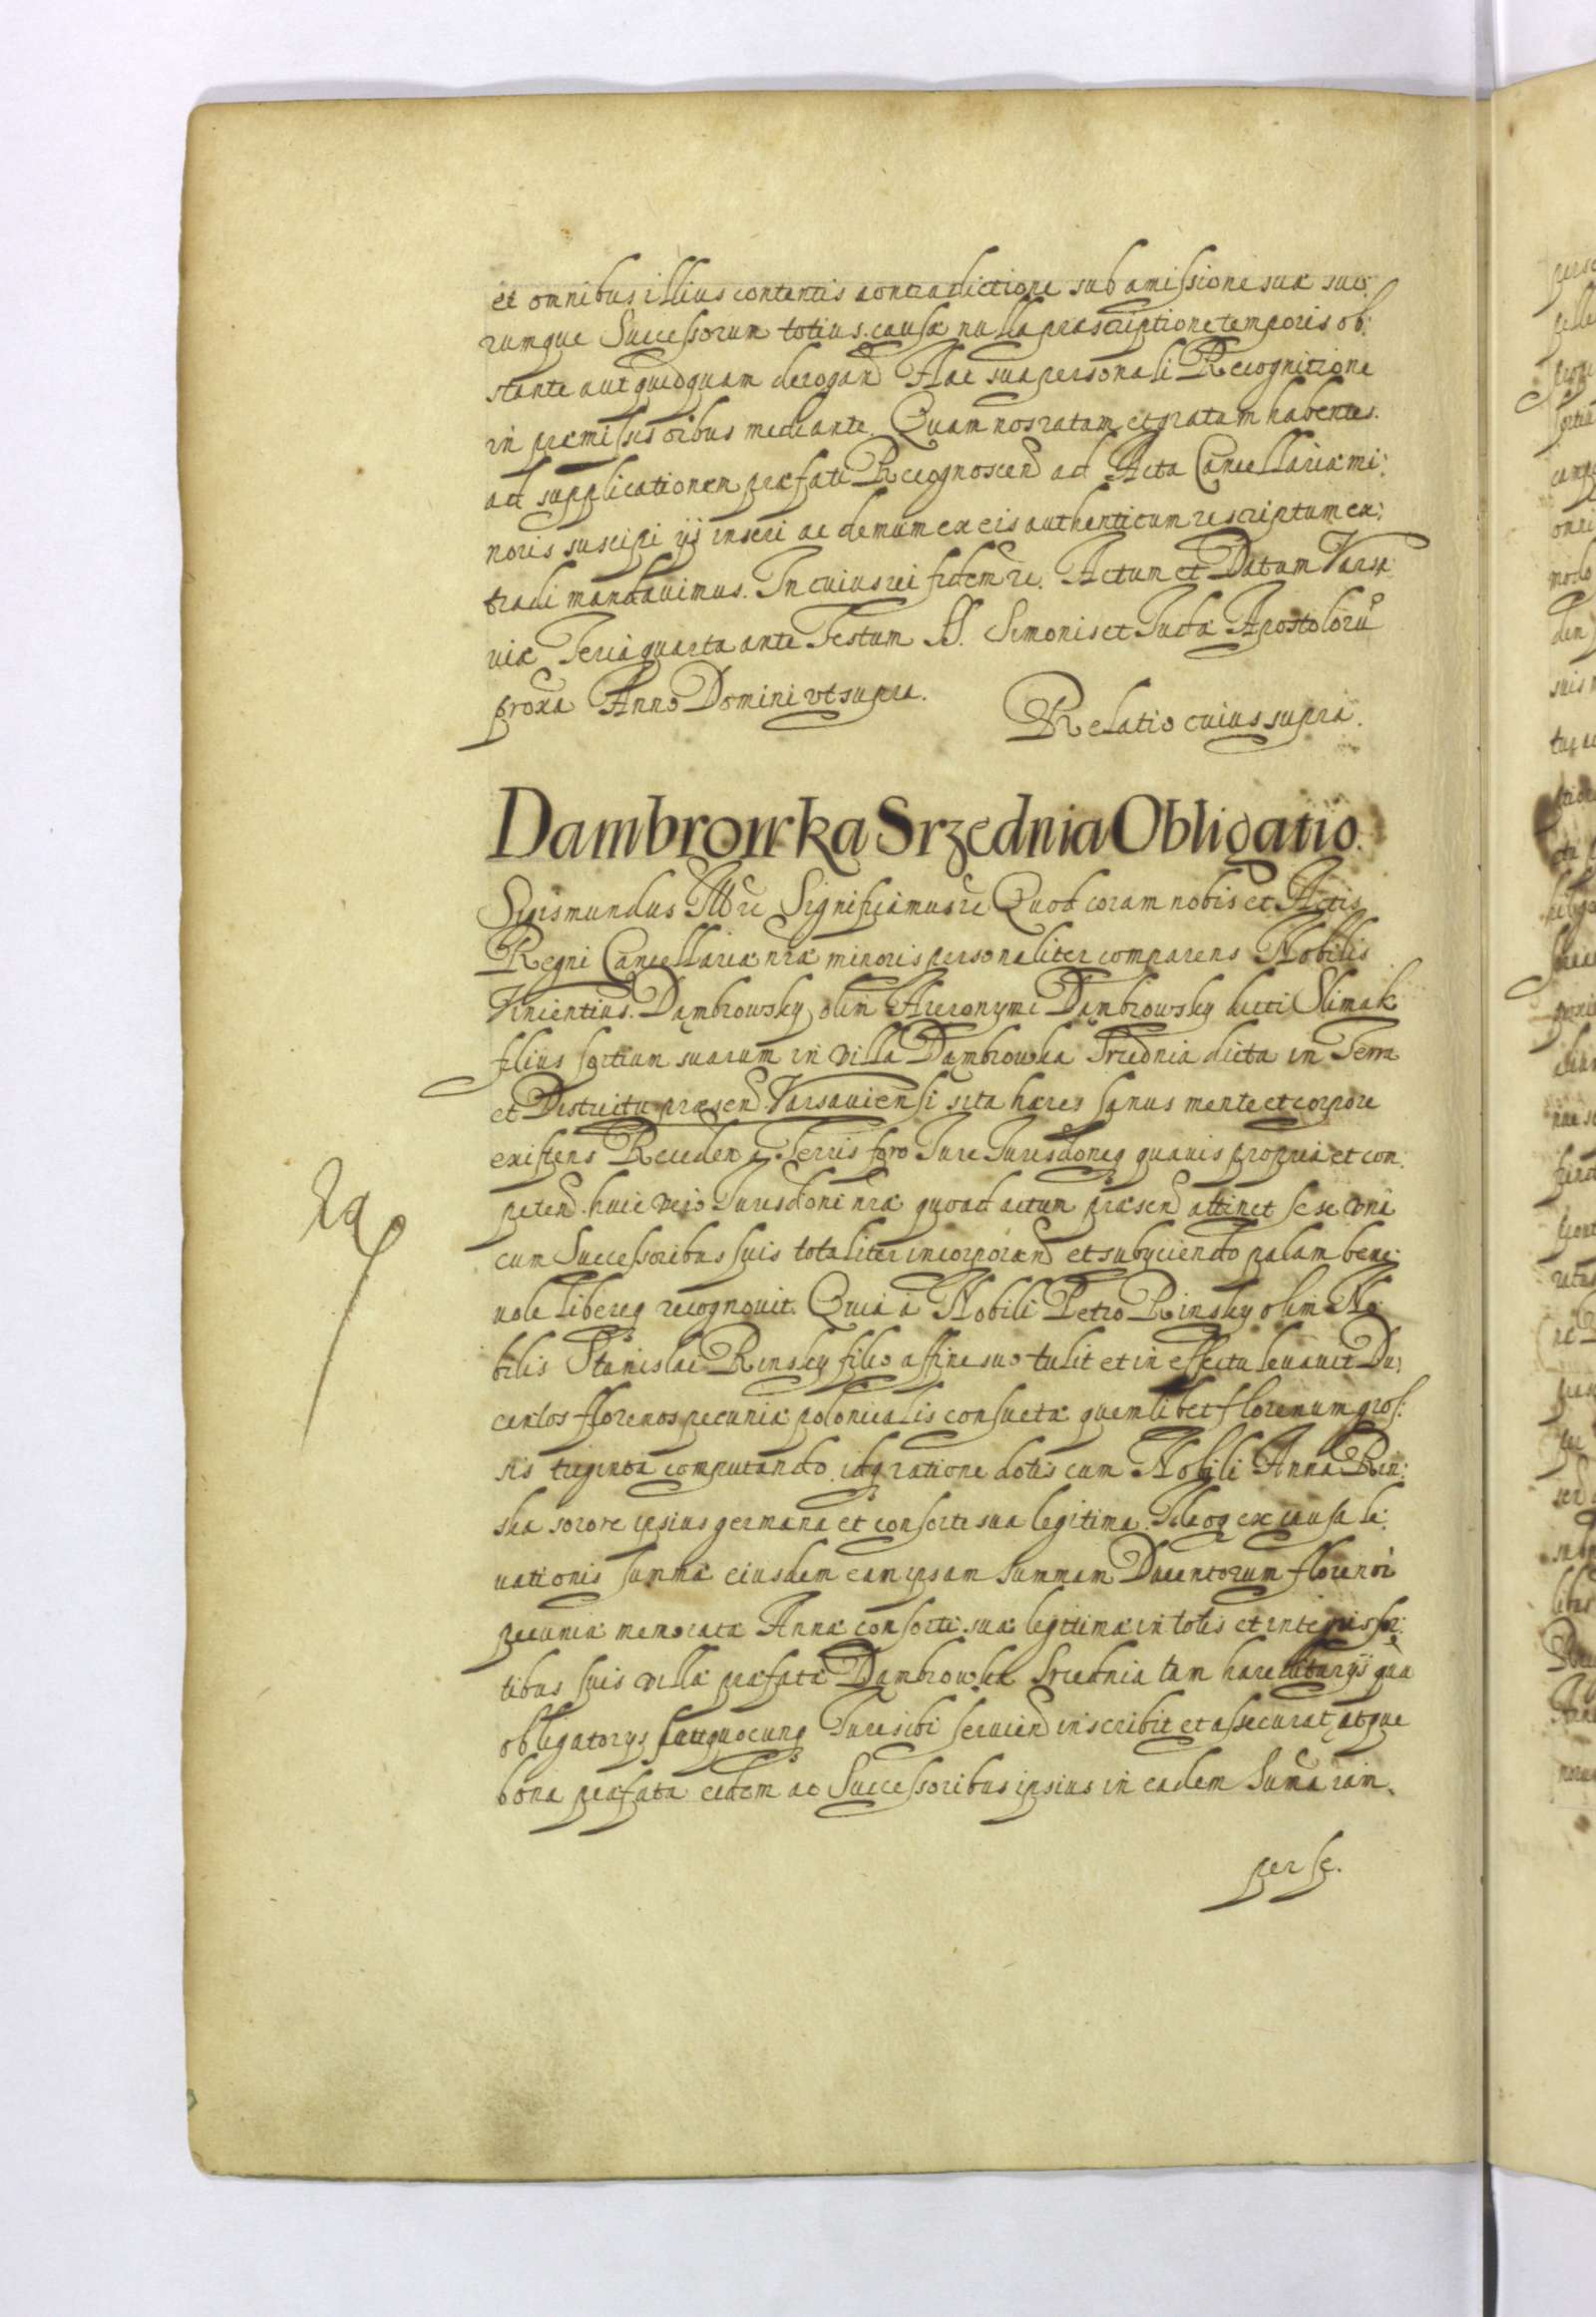 et omnibus illius contentis contradictione sub amissione suæ suo:
rumque Successorum totius causæ nulla præscriptione temporis ob:
stante aut quidquam derogand Hac sua personali Recognitione
in præmissis oibus mediante. Quam nos ratam et gratam habentes.
ad supplicationem præfati Recognoscen ad Acta Cancellariæ mi:
noris suscipi ijs inseri ac demum ex eis authenticum rescriptum ex:
tradi mandauimus. In cuius rei fidem etc. Actum et Datum Varsa:
uiæ Feria quarta ante Festum SS. Simonis et Judæ Apostoloru
proxa Anno Domini vt supra.
Relatio cuius supra.
Dambrowka Srzednia Obligatio.
Sigismundus IIIus etc Significamus etc Quod coram nobis et Actis
Regni Cancellariæ nræ minoris personaliter comparens Nobilis
Vincentius Dambrowsky olim Hieronymi Dambrowsky dicti Slimak
filius sortium suarum in villa Dambrowka Srzednia dicta in Terra
et Districtu præsen Varsauiensi sita hæres sanus mente et corpore
existens Receden a Terris foro Jure Jurisdoneq quauis propria et con:
peten huic vero Jurisdoni nræ quoad actum præsen attinet sese vna
cum Successoribus suis totaliter incorporan et subyciendo palam bene:
uole libereq recognouit. Quia a Nobili Petro Rinsky olim No:
bilis Stanislai Rinsky filio affine suo tulit et in effectu leuauit Du:
centos florenos pecuniæ polonicalis consuetæ quemlibet florenum gros:
sis triginta computando idq ratione dotis cum Nobili Anna Rin:
ska sorore ipsius germana et consorte sua legitima. Ideoq ex causa le:
uationis summæ eiusdem eam ipsam summam Ducentorum florenor
pecuniæ memoratæ Annæ consorti suæ legitimæ in totis et integris sor:
tibus suis villæ præfatæ Dambrowka Srzednia tam hæreditarijs qua
obligatorys siue quocunq Jure sibi seruien inscribit et assecurat, atque
bona præfata eidem ac Successoribus ipsius in eadem Suma iam
per se.